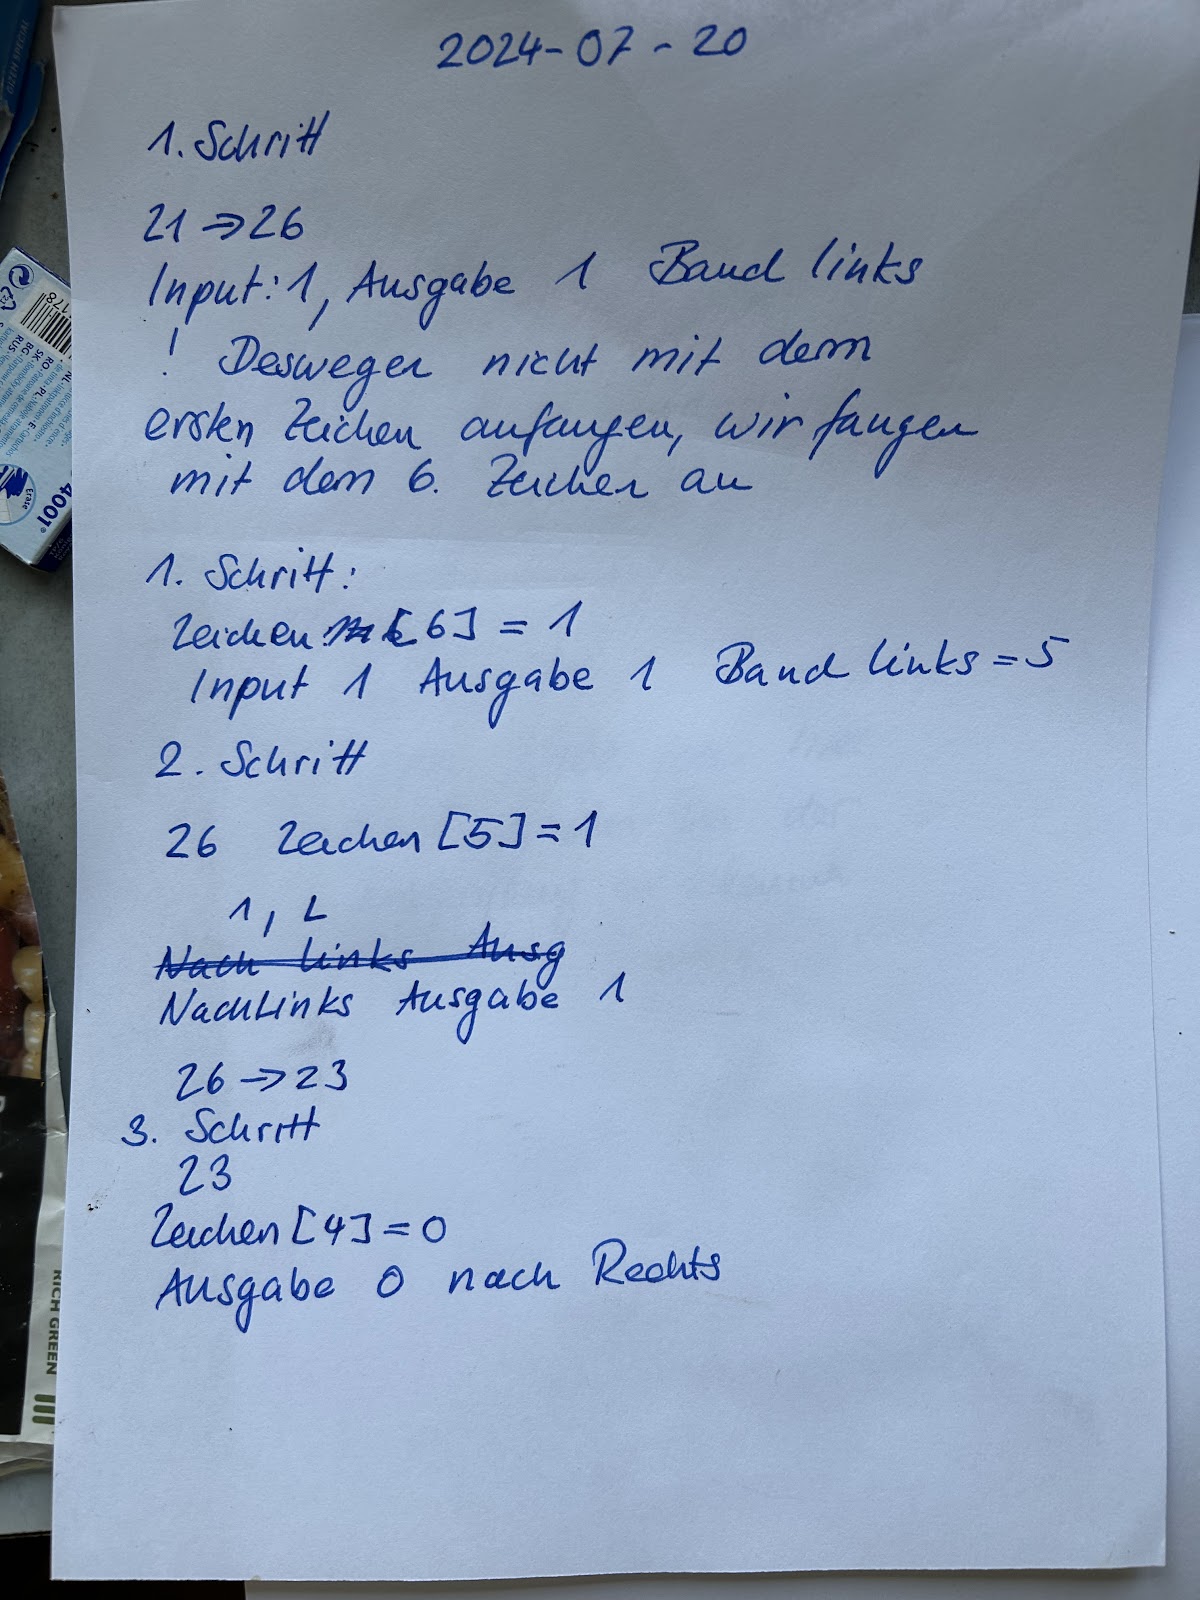 2024-07-20
1. Schritt
21 => 26
Input: 1, Ausgabe 1 Band links
! Deswegen nicht mit dem
ersten Zeichen anfangen, wir fangen
mit dem 6. Zeichen an
1. Schritt:
Zeichen [6] = 1
Input 1 Ausgabe 1 Band links = 5
2. Schritt
26 Zeichen [5] = 1
1, L
Nach links Ausg
Nach Links Ausgabe 1
26 -> 23
3. Schritt
23
Zeichen [4] = 0
Ausgabe 0 nach Rechts
4001
178
Erase
RICH GREEN